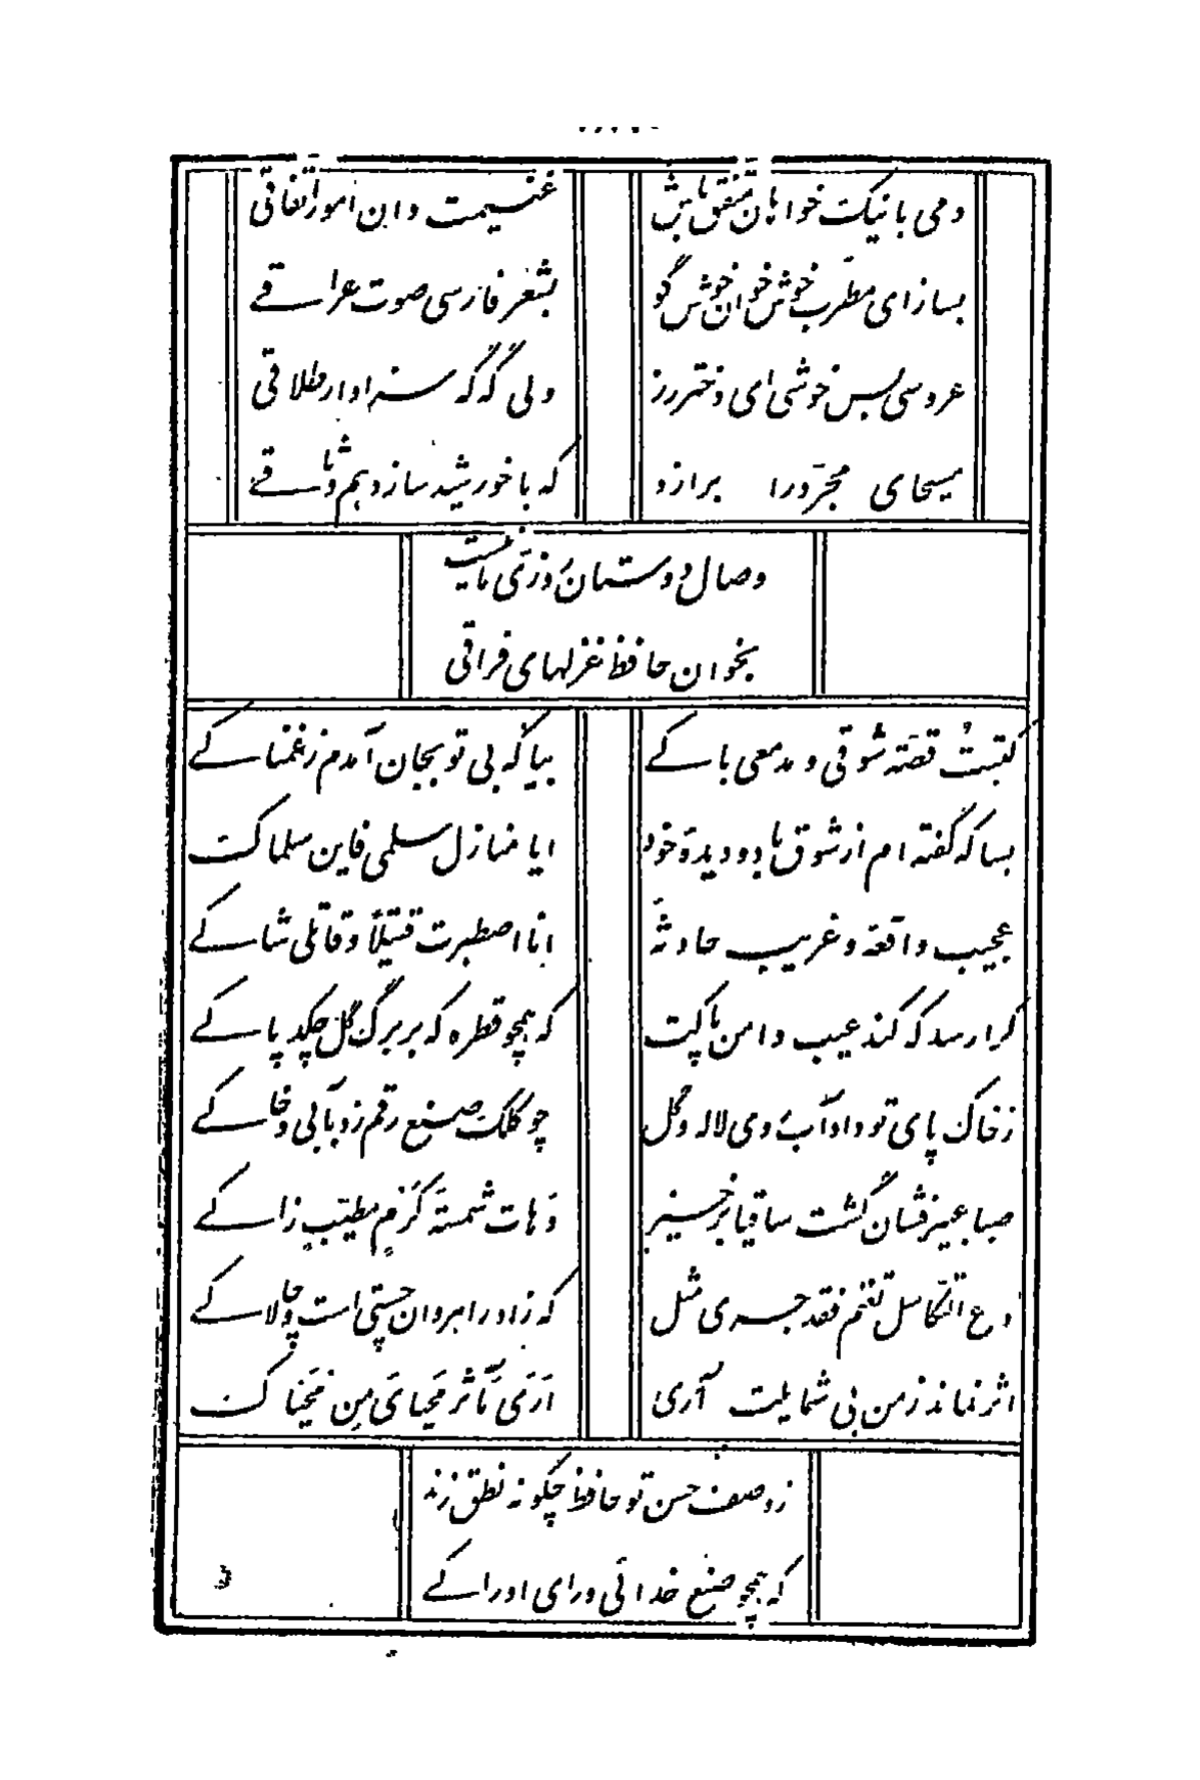 دمی با نیکخواهان متفق باش
غنیمت دان امور اتفاقی
بساز ای مطرب خوش خوان خوش گو
بشعر فارسی صوت عراقے
عروسی بس خوشی ای دختر رز
ولی گه گه سزاوار طلاقی
مسیحای مجرّد را برازد
که با خورشید سازد هم وثاقے
وصال دوستان روزیّ ما نیست
بخوان حافظ غزلهای فراقی
کتبتُ قصّة شوقی و مدمعی باکے
بیا که بی تو بجان آمدم ز غمناکے
بسا که گفته ام از شوق با دو دیدهٔ خود
ایا منازل سلمی فاین سلماک
عجیب واقعهٔ و غریب حادثهٔ
انا اصطبرت قتیلاً و قاتلی شاکے
کرا رسد که کند عیب دامن پاکت
که همچو قطره که بر برگ گل چکد پاکے
ز خاک پای تو داد آب روی لاله و گل
چو کلک صنع رقم زد بآبی و خاکے
صبا عبیر فشان گشت ساقیا برخیز
وَ هات شمسة کَرْمٍ مطیّبٍ زاکے
دع التّکاسل تغنم فقد جری مثل
که زاد راهروان چستی است و چالاکے
اثر نماند ز من بی شمایلت آری
اَریٰ مَآثر مَحیایَ مِن مُحَیّاک
ز وصف حسن تو حافظ چگونه نطق زند
که همچو صنع خدائی ورای ادراکے